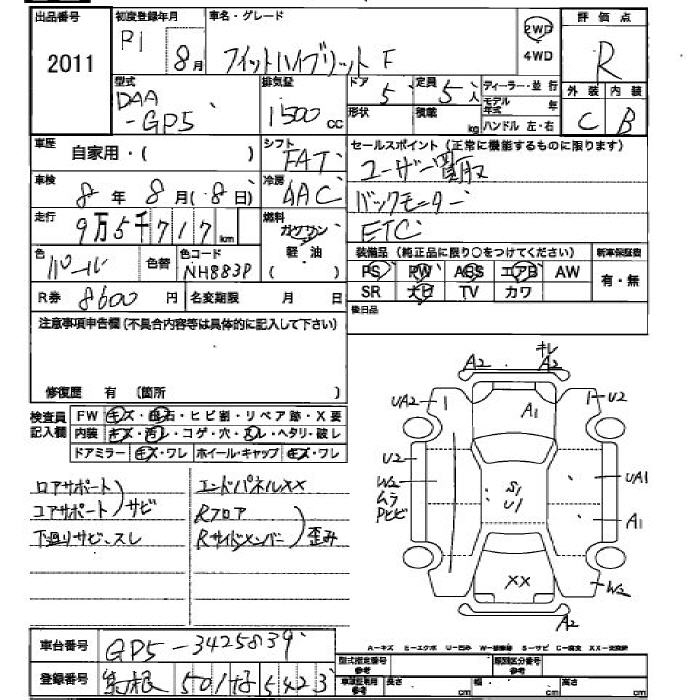 出品番号
2011
初度登録年月
R1 8月
車名・グレード
フィットハイブリット F
2WD
4WD
評価点
R
外装 内装
C B
型式
DAA
-GP5
排気量
1500 cc
ドア
5
定員
5人
形状
積載
kg
ディーラー・並行
モデル年式 年
ハンドル 左・右
車歴
自家用・( )
シフト
FAT
セールスポイント(正常に機能するものに限ります)
ユーザー買取
バックモーター
ETC
車検
8年 8月(8日)
冷房
AAC
走行
9万5千717km
燃料
ガソリン
軽油
( )
色
パール
色替
色コード
NH883P
装備品(純正品に限り○をつけてください)
PS PW ABS エアB AW
SR ナビ TV カワ
新車保証書
有・無
R券 8600円
名変期限 月 日
後日品
注意事項申告欄(不具合内容等は具体的に記入して下さい)
修復歴 有 (箇所 )
検査員
記入欄
FW キズ・飛石・ヒビ割・リペア跡・X要
内装 キズ・汚レ・コゲ・穴・スレ・ヘタリ・破レ
ドアミラー キズ・ワレ ホイール・キャップ キズ・ワレ
ロアサポート
コアサポート サビ
下廻りサビ、スレ
エンドパネルXX
Rフロア
Rサイドメンバー 歪み
A2 キレ
A2
UA2 1
1 U2
A1
U2
W2
ムラ
Pヒビ
S1
U1
UA1
A1
XX
W2
A2
A-キズ E-エクボ U-凹み W-補修跡 S-サビ C-腐食 XX-交換済
車台番号 GP5-3425839
登録番号 島根 501 5423
型式指定番号
参考
類別区分番号
参考
車庫証明用
参考
長さ cm 幅 cm 高さ cm